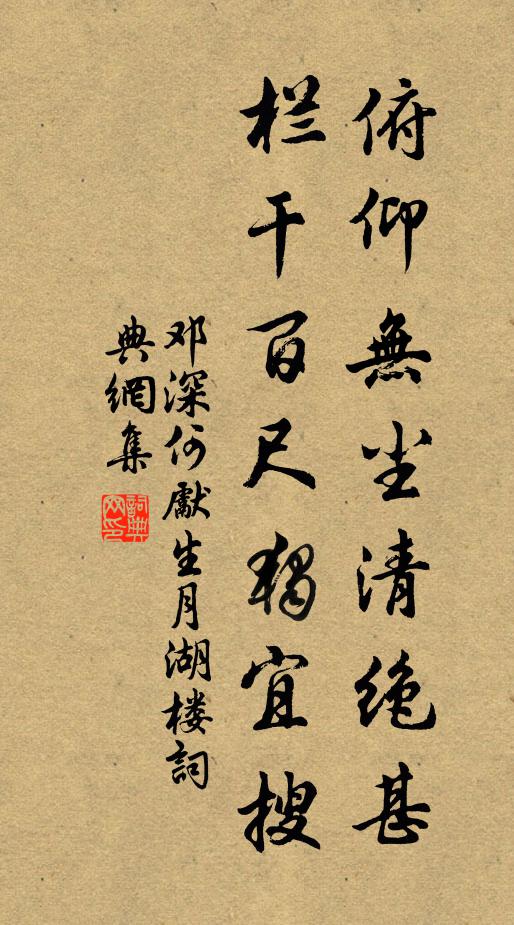 俯仰無尘清绝甚
栏干百尺独宜搜
邓深何獻生月湖楼詞
典網集
詞典
网印